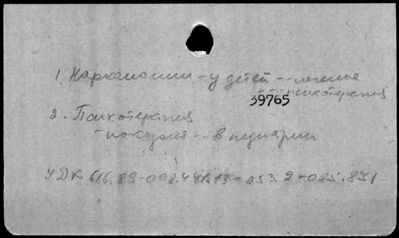 1. Наркомании - у детей -- лечение
--- психотерапия
39765
2. Психотерапия
- в педиатрии
УДК 616.89-008.441.13-053.2-085.851